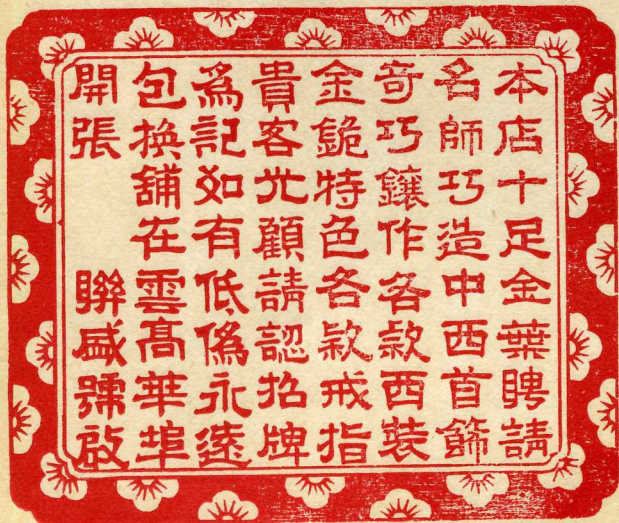 本店十足金葉聘請
名師巧造中西首飾
奇巧鑲作各款西裝
金銫特色各款戒指
貴客光顧請認招牌
爲記如有低偽永遠
包換舖在雲高華埠
開張 聯盛號啟